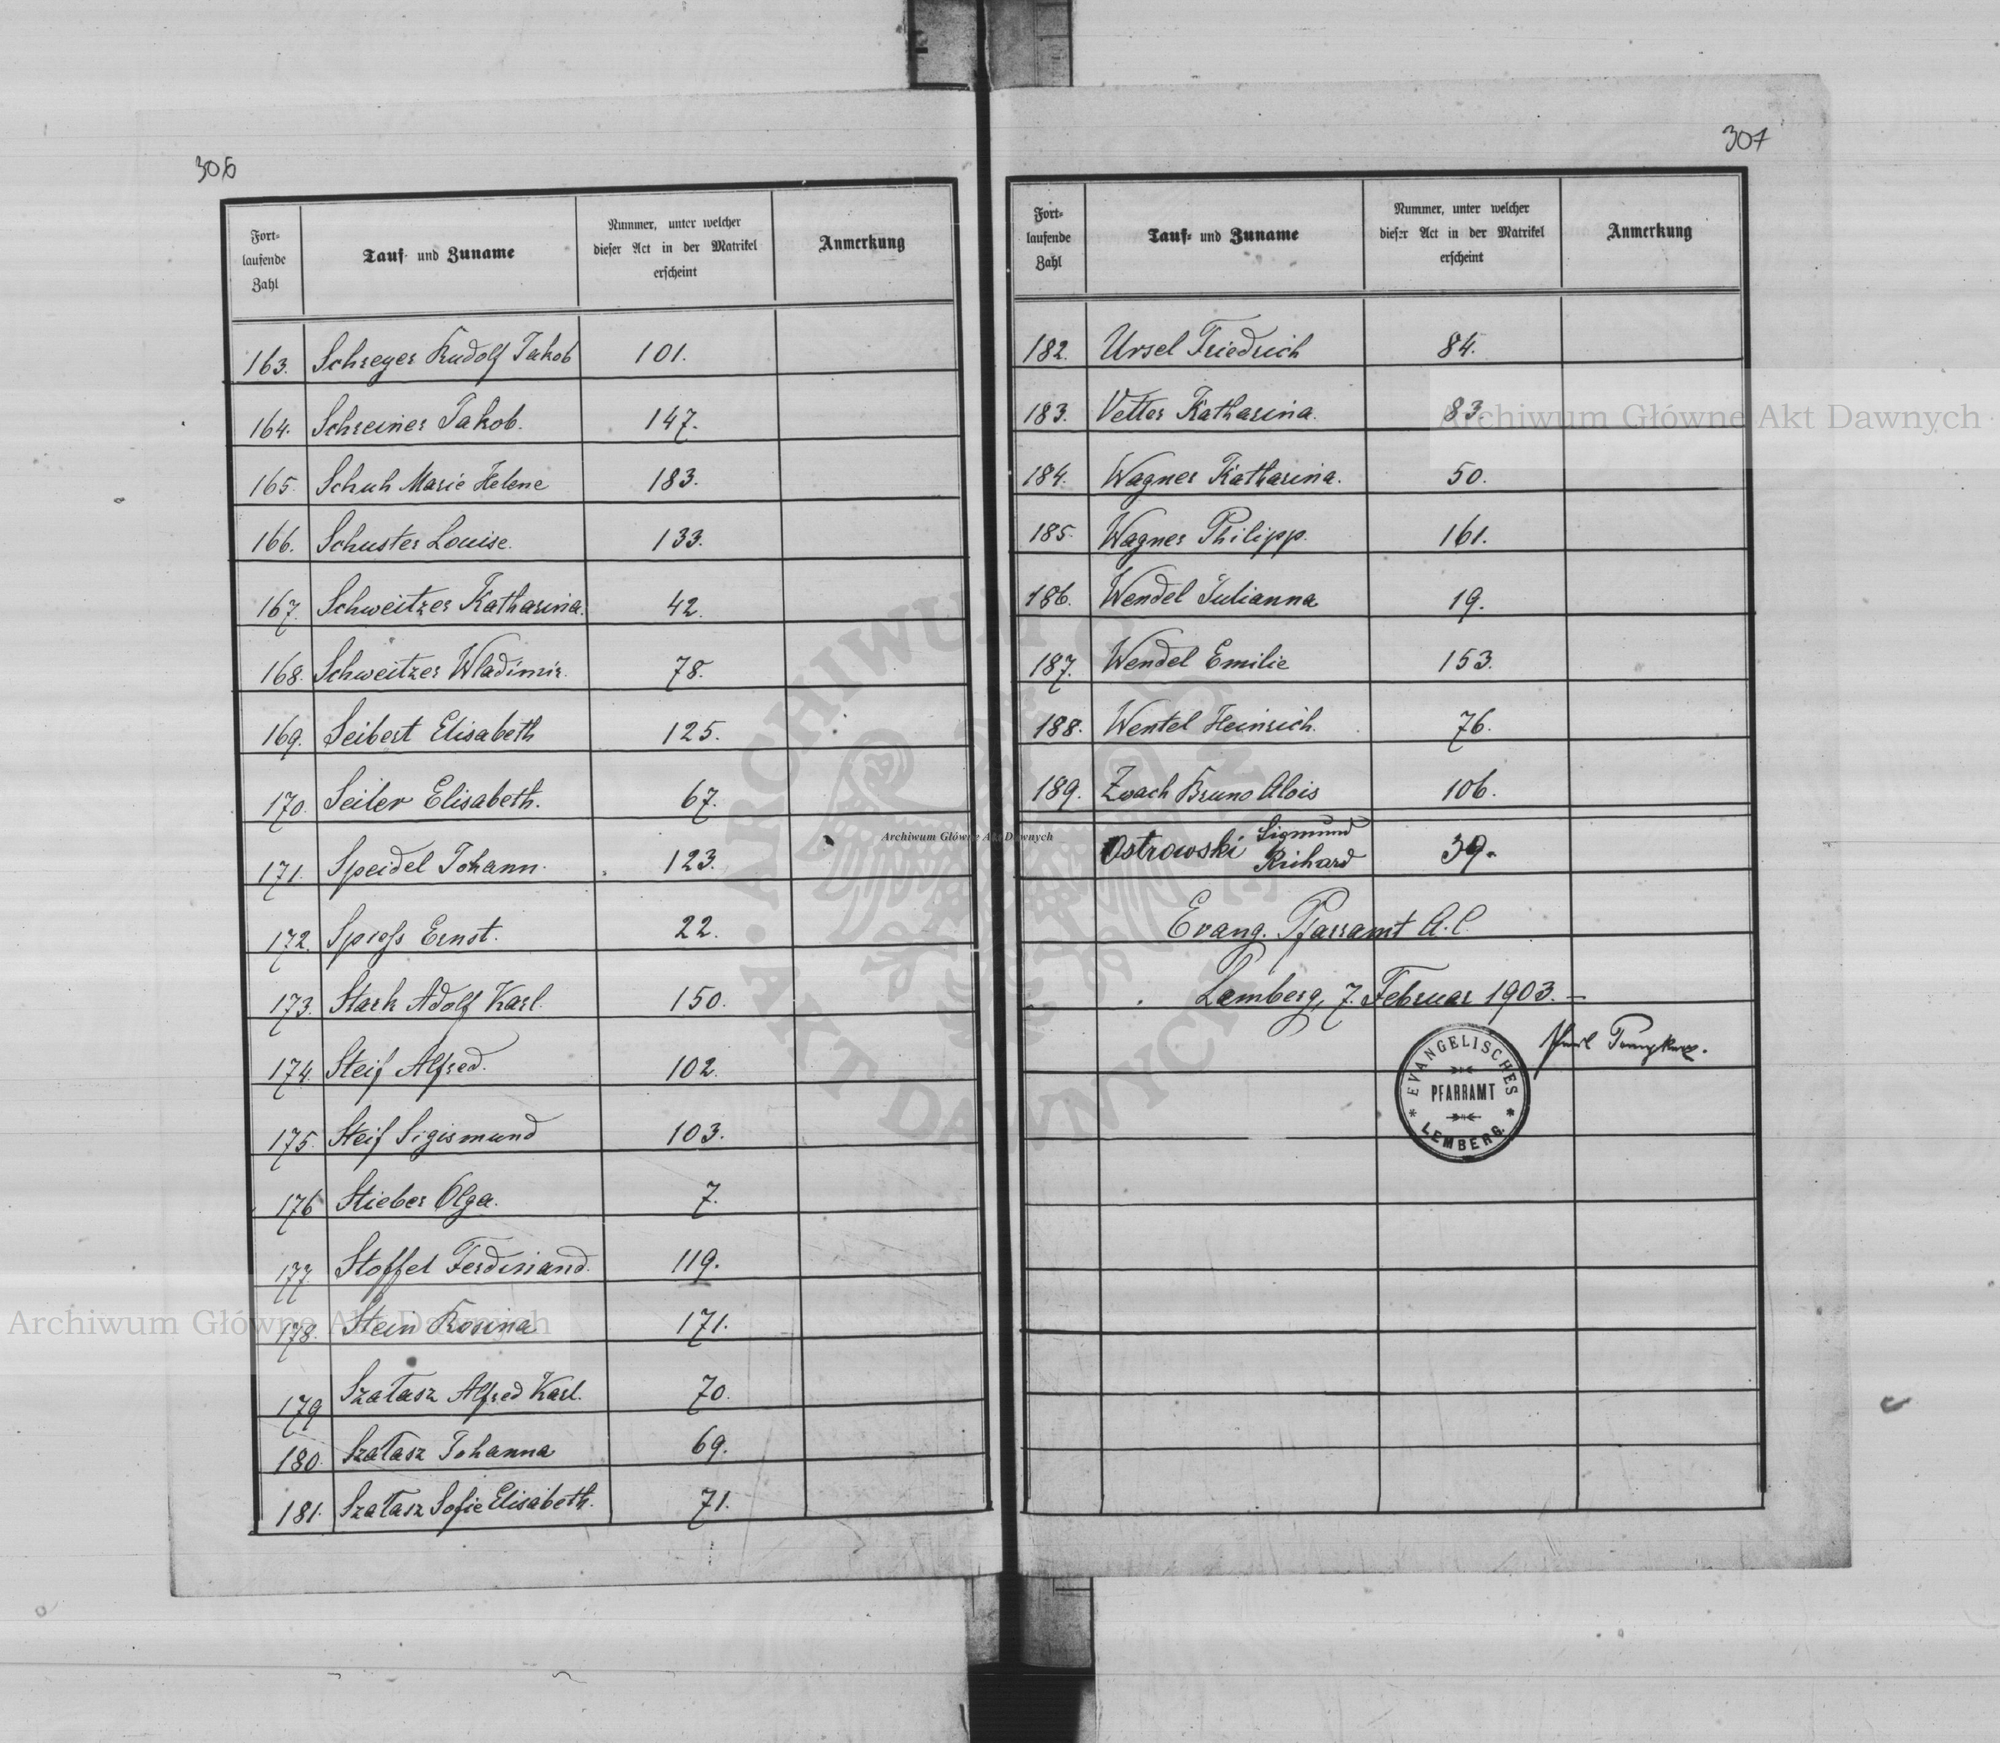 306
Fort-
laufende
Zahl
Tauf- und Zuname
Nummer, unter welcher
dieser Act in der Matrikel
erscheint
Anmerkung
163. Schreyer Rudolf Jakob 101.
164. Schreiner Jakob. 147.
165. Schuh Marie Helene 183.
166. Schuster Louise. 133.
167. Schweitzer Katharina. 42.
168. Schweitzer Wladimir. 78.
169. Seibert Elisabeth 125.
170. Seiler Elisabeth. 67.
171. Speidel Johann. 123.
172. Spieß Ernst. 22.
173. Stark Adolf Karl. 150.
174. Steif Alfred. 102.
175. Steif Sigismund 103.
176 Stieber Olga. 7.
177. Stoffel Ferdinand. 119.
178. Stein Rosina 171.
179 Szałasz Alfred Karl. 70.
180. Szałasz Johanna 69.
181. Szałasz Sofie Elisabeth. 71.
307
Fort-
laufende
Zahl
Tauf- und Zuname
Nummer, unter welcher
dieser Act in der Matrikel
erscheint
Anmerkung
182. Ursel Friedrich 84.
183. Vetter Katharina. 83.
184. Wagner Katharina. 50.
185. Wagner Philipp. 161.
186. Wendel Julianna 19.
187. Wendel Emilie 153.
188. Wentel Heinrich. 76.
189. Zwach Bruno Alois 106.
Ostrowski Sigmund Richard 39.
Evang. Pfarramt A.C.
Lemberg, 7. Februar 1903.—
EVANGELISCHES
PFARRAMT
LEMBERG.
Archiwum Główne Akt Dawnych
Archiwum Główne Akt Dawnych
Archiwum Główne Akt Dawnych
ARCHIWUM GŁÓWNE
AKT DAWNYCH